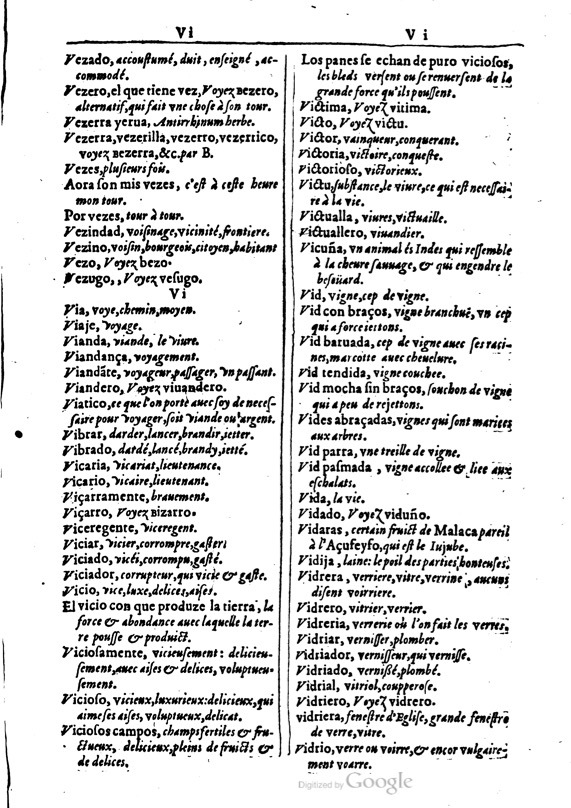 Vi
Vezado, accouſtumé, duit, enſeigné, ac-
commodé.
Vezero, el que tiene vez, Voyez Bezero,
alternatif, qui fait vne choſe à ſon tour.
Vezerra yerua, Antirrhinum herbe.
Vezerra, vezerilla, vezerro, vezerrico,
voyez Bezerra, &c. par B.
Vezes, pluſieurs fois.
Aora ſon mis vezes, c'eſt à ceſte heure
mon tour.
Por vezes, tour à tour.
Vezindad, voiſinage, vicinité, frontiere.
Vezino, voiſin, bourgeois, citoyen, habitant
Vezo, Voyez bezo.
Vezugo,, Voyez veſugo.
Vi
Via, voye, chemin, moyen.
Viaje, voyage.
Vianda, viande, le viure.
Viandança, voyagement.
Viandãte, voyageur, paſſager, vn paſſant.
Viandero, Voyez viuandero.
Viatico, ce que l'on porte auec ſoy de neceſ-
ſaire pour voyager, ſoit viande ou argent.
Vibrar, darder, lancer, brandir, ietter.
Vibrado, dardé, lancé, brandy, ietté.
Vicaria, vicariat, lieutenance.
Vicario, vicaire, lieutenant.
Viçarramente, brauement.
Viçarro, Voyez Bizarro.
Viceregente, viceregent.
Viciar, vicier, corrompre, gaſter:
Viciado, vicié, corrompu, gaſté.
Viciador, corrupteur, qui vicie & gaſte.
Vicio, vice, luxe, delices, aiſes.
El vicio con que produze la tierra, la
force & abondance auec laquelle la ter-
re pouſſe & produict.
Vicioſamente, vicieuſement: delicieu-
ſement, auec aiſes & delices, voluptueu-
ſement.
Vicioſo, vicieux, luxurieux: delicieux, qui
aime ſes aiſes, voluptueux, delicat.
Vicioſos campos, champs fertiles & fru-
ctueux, delicieux, pleins de fruicts &
de delices.
Vi
Los panes ſe echan de puro vicioſos,
les bleds verſent ou ſe renuerſent de la
grande force qu'ils pouſſent.
Victima, Voyez vitima.
Victo, Voyez victu.
Victor, vainqueur, conquerant.
Victoria, victoire, conqueſte.
Victorioſo, victorieux.
Victu, ſubſtance, le viure, ce qui eſt neceſſai-
re à la vie.
Victualla, viures, victuaille.
Victuallero, viuandier.
Vicuña, vn animal és Indes qui reſſemble
à la cheure ſauuage, & qui engendre le
beſoüard.
Vid, vigne, cep de vigne.
Vid con braços, vigne branchuë, vn cep
qui a force iettons.
Vid baruada, cep de vigne auec ſes raci-
nes, marcotte auec cheuelure.
Vid tendida, vigne couchee.
Vid mocha ſin braços, ſouchon de vigne
qui a peu de rejettons.
Vides abraçadas, vignes qui ſont mariees
aux arbres.
Vid parra, vne treille de vigne.
Vid paſmada, vigne accollee & liee aux
eſchalats.
Vida, la vie.
Vidado, Voyez viduño.
Vidaras, certain fruict de Malaca pareil
à l'Açufeyfo, qui eſt le Iujube.
Vidija, laine: le poil des parties honteuſes.
Vidrera, verriere, vitre, verrine, aucuns
diſent voirriere.
Vidrero, vitrier, verrier.
Vidreria, verrerie où l'on fait les verres.
Vidriar, verniſſer, plomber.
Vidriador, verniſſeur, qui verniſſe.
Vidriado, verniſſé, plombé.
Vidrial, vitriol, coupperoſe.
Vidriero, Voyez vidrero.
vidriera, feneſtre d'Egliſe, grande feneſtre
de verre, vitre.
Vidrio, verre ou voirre, & encor vulgaire-
ment voarre.
Digitized by Google